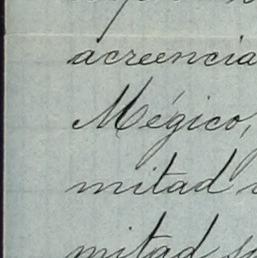 acreencia
Mégico,
mitad
mitad